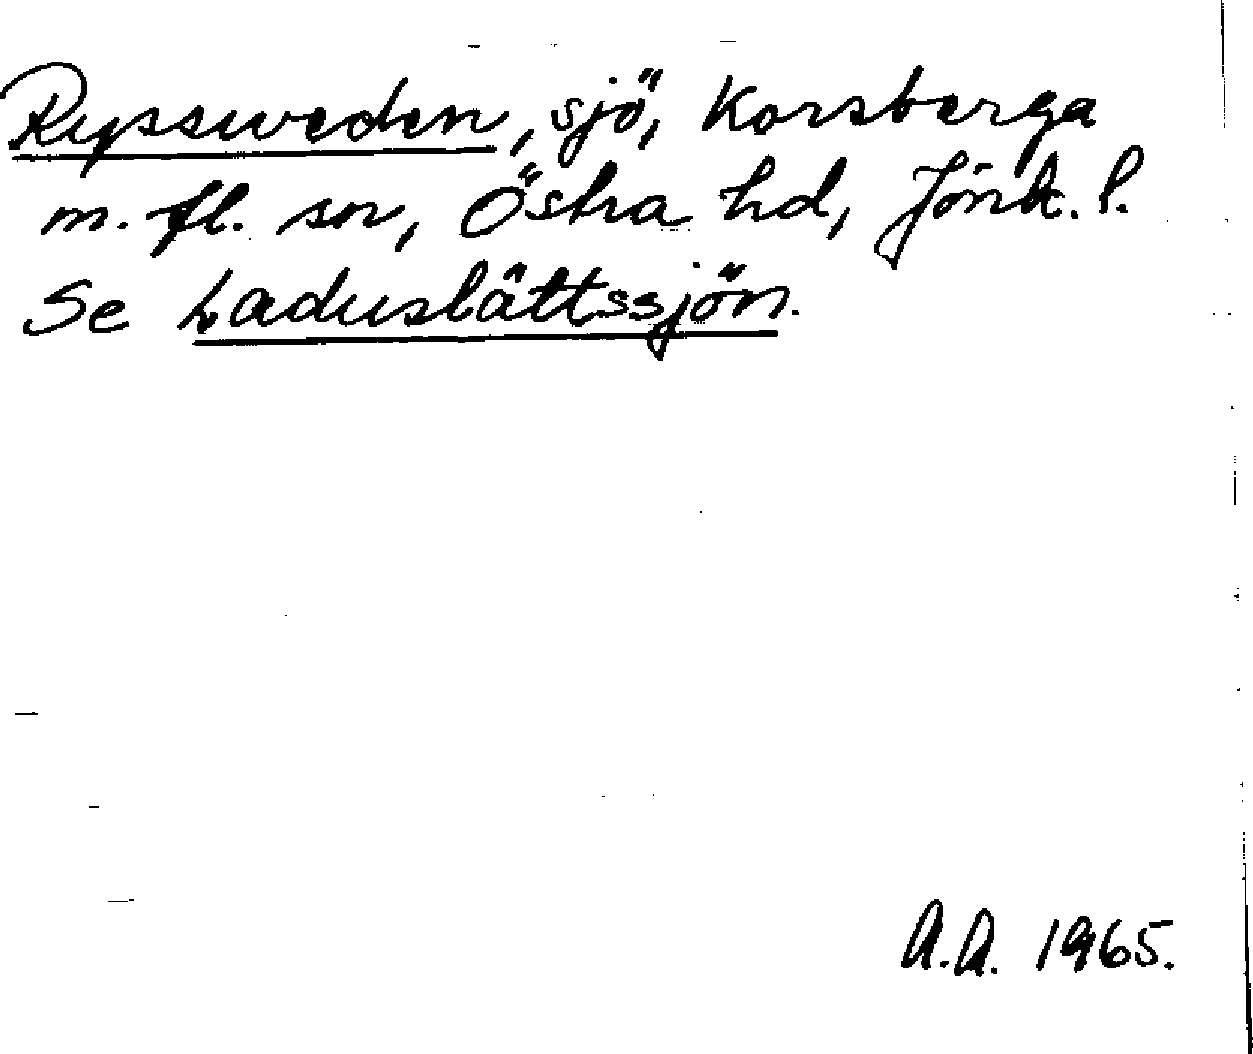 Ryssweden, sjö, Korsberga
m. fl. snr, Östra hd, Jönk. l.
Se Laduslättssjön.
A.A. 1965.